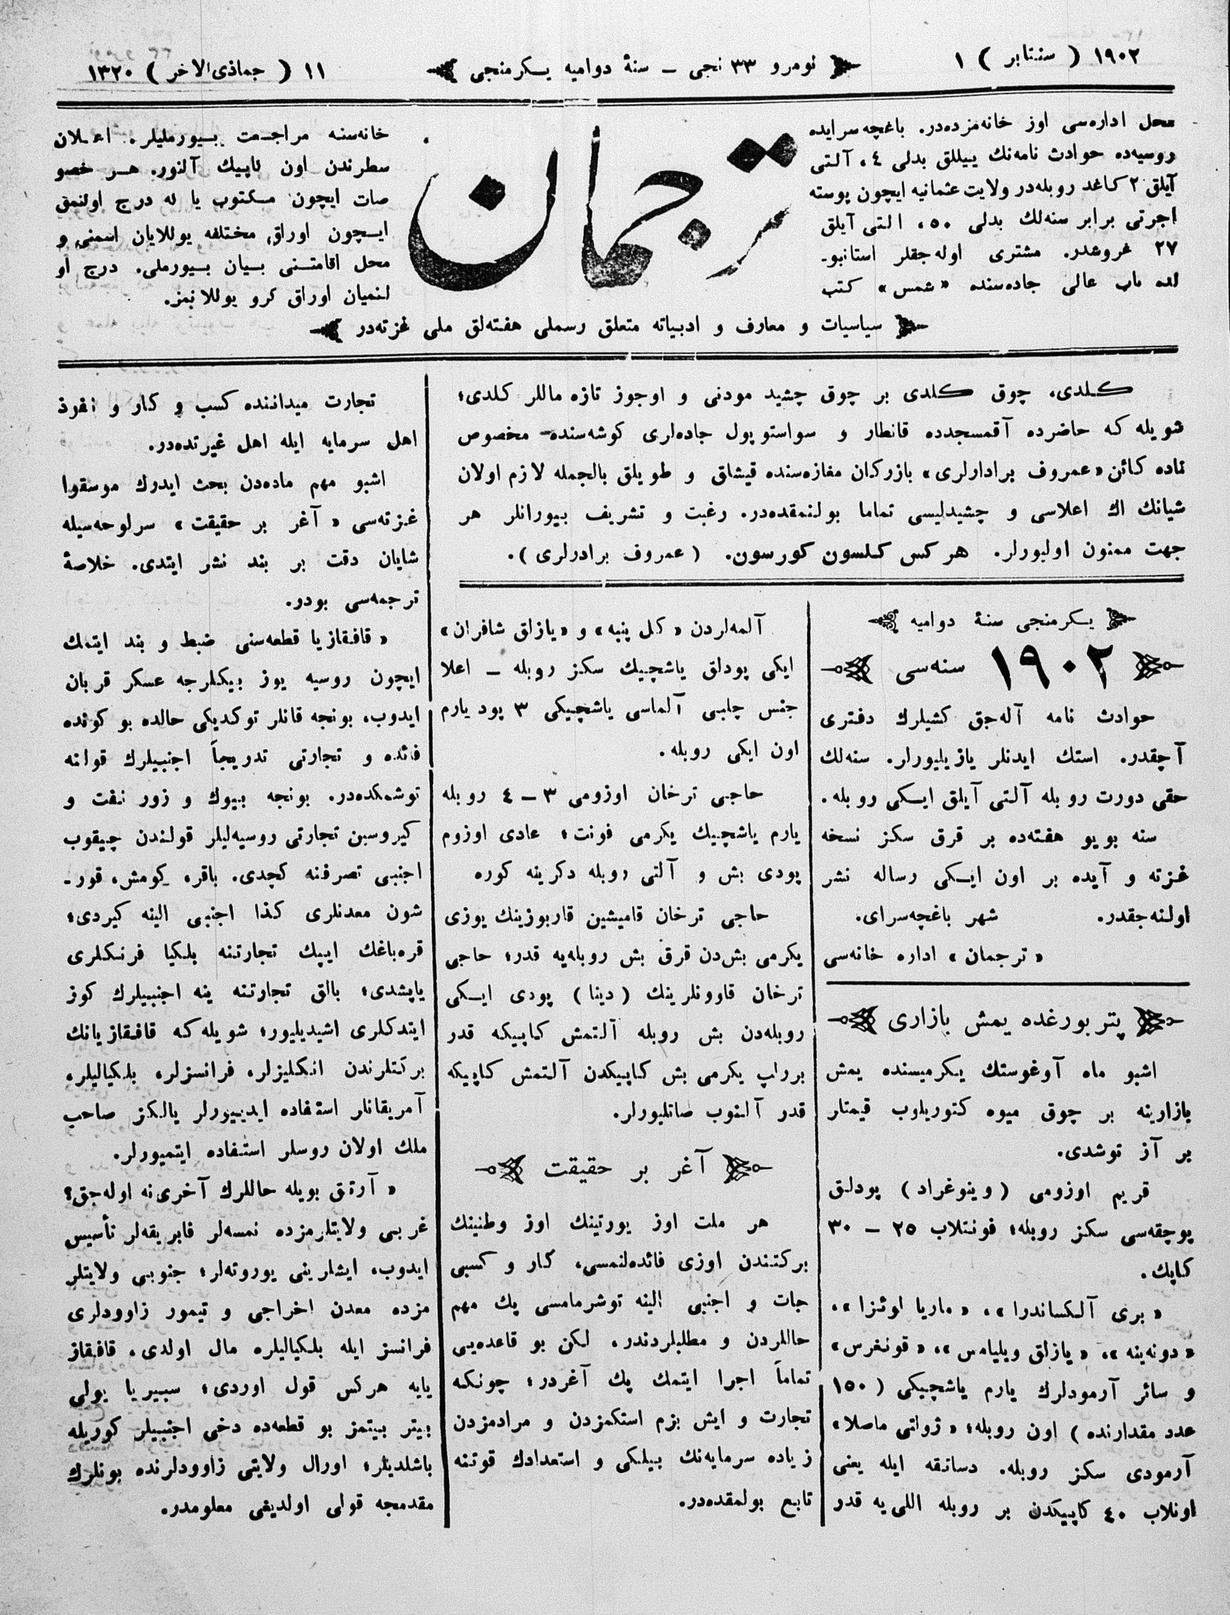 ١٩٠٢ ( سنتابر ) ١
نومرو ٣٣ نجى ــ سنهٔ دواميه يكرمنجى
١١ ( جماذى الاخر ) ١٣٢٠
محل اداره‌سى اوز خانه‌مزده‌در. باغچه‌سرايده
روسيه‌ده حوادث نامه‌نك ييللق بدلى ٤، آلتى
آيلق ٢ كاغد روبله‌در ولايت عثمانيه ايچون پوسته
اجرتى برابر سنه‌لك بدلى ٥٠، التى آيلق
٢٧ غروشدر. مشترى اوله‌جقلر استانبو-
لده باب عالى جاده‌سنده «شمس» كتب
ترجمان
خانه‌سنه مراجعت بيورمليلر. اعلان
سطرندن اون كاپيك آلنور. هر خصو
صات ايچون مكتوب يا له درج اولنمق
ايچون اوراق مختلفه يوللايان اسمنى و
محل اقامتنى بيان بيورملى. درج او
لنميان اوراق كرو يوللانمز.
سياسيات و معارف و ادبياته متعلق رسملى هفته‌لق ملى غزته‌در
كلدى، چوق كلدى بر چوق چشيد مودنى و اوجوز تازه ماللر كلدى؛
شويله كه حاضرده آقمسجدده قانطار و سواستوپول جاده‌لرى كوشه‌سنده مخصوص
ماده كائن «عمروف برادارلرى» بازركان مغازه‌سنده قيشلق و طويلق بالجمله لازم اولان
شيانك اك اعلاسى و چشيدليسى تماما بولنمقده‌در. رغبت و تشريف بيورانلر هر
جهت ممنون اوليورلر. هركس كلسون كورسون. ( عمروف برادرلرى ).
يكرمنجى سنهٔ دواميه
١٩٠٢ سنه‌سى
حوادث نامه آله‌جق كشيلرك دفترى
آچقدر. استك ايدنلر يازيليورلر. سنه‌لك
حقى دورت روبله آلتى آيلق ايكى روبله.
سنه بويو هفته‌ده بر قرق سكز نسخه
غزته و آيده بر اون ايكى رساله نشر
اولنه‌جقدر. شهر باغچه‌سراى.
«ترجمان» اداره خانه‌سى
پتربورغده يمش بازارى
اشبو ماه آوغوستك يكرميسنده يمش
بازارينه بر چوق ميوه كتوريلوب قيمتلر
بر آز توشدى.
قريم اوزومى ( وينوغراد ) پودلق
بوچقه‌سى سكز روبله؛ فونتلاب ٢٥ – ٣٠
كاپك.
«برى آلكساندرا»، «ماريا لوئزا»،
«دونه‌ينه»، «يازلق ويليامس»، «قونغرس»
و سائر آرمودلرك يارم ياشچيكى (١٥٠
عدد مقدارنده ) اون روبله؛ «ژواتى ماصلا»
آرمودى سكز روبله. دسانقه ايله يعنى
اونلاب ٤٠ كاپيكدن بر روبله اللى‌يه قدر
آلمه‌لردن «كل پنبه» و «يازلق شافران»
ايكى پودلق ياشچيك سكز روبله ــ اعلا
جنس چلبى آلماسى ياشچيكى ٣ پود يارم
اون ايكى روبله.
حاجى ترخان اوزومى ٣ــ٤ روبله
يارم ياشچيك يكرمى فونت؛ عادى اوزوم
پودى بش و آلتى روبله دكرينه كوره
حاجى ترخان قاميشين قاربوزينك يوزى
يكرمى بش‌دن قرق بش روبله‌يه قدر؛ حاجى
ترخان قاوونلرينك ( دينا ) پودى ايكى
روبله‌دن بش روبله آلتمش كاپيكه قدر
برراب يكرمى بش كاپيكدن آلتمش كاپيكه
قدر آلنوب صاتليورلر.
آغر بر حقيقت
هر ملت اوز يورتينك اوز وطنينك
بركتندن اوزى فائده‌لنمسى، كار و كسبى
جات و اجنبى الينه توشرمامسى پك مهم
حاللردن و مطلبلردندر. لكن بو قاعده‌يى
تماماً اجرا ايتمك پك آغردر؛ چونكه
تجارت و ايش بزم استكمزدن و مرادمزدن
زياده سرمايه‌نك بيلكى و استعدادك قوتنه
تابع بولمقده‌در.
تجارت ميداننده كسب و كار و نفوذ
اهل سرمايه ايله اهل غيرتده‌در.
اشبو مهم ماده‌دن بحث ايدرك موسقوا
غزته‌سى «آغر بر حقيقت» سرلوحه‌سيله
شايان دقت بر بند نشر ايتدى. خلاصهٔ
ترجمه‌سى بودر.
«قافقازيا قطعه‌سنى ضبط و بند ايتمك
ايچون روسيه يوز بيكلرجه عسكر قربان
ايدوب، بونجه قانلر توكديكى حالده بو كونده
فائده و تجارتى تدريجاً اجنبيلرك قولنه
توشمكده‌در. بونجه بيوك و زور نفت و
كيروسين تجارتى روسيه‌ليلر قولندن چيقوب
اجنبى تصرفنه كچدى. باقر، كومش، قور-
شون معدنلرى كذا اجنبى الينه كيردى؛
قره‌باغك ايپك تجارتنه بلكيا فرنكلرى
ياپشدى؛ بالق تجارتنه ينه اجنبيلرك كوز
ايتدكلرى اشيديليور؛ شويله‌كه قافقازيانك
بركتلرندن انكليزلر، فرانسزلر، بلكياليلر،
آمريقانلر استفاده ايدييورلر يالكز صاحب
ملك اولان روسلر استفاده ايتميورلر.
«آرتق بويله حاللرك آخرى‌نه اوله‌جق؟
غربى ولايتلرمزده نمسه‌لر فابريقه‌لر تأسيس
ايدوب، ايشلرينى يوروته‌لر؛ جنوبى ولايتلر
مزده معدن اخراجى و تيمور زاوودلرى
فرانسز ايله بلكياليلره مال اولدى، قافقاز
يايه هركس قول اوردى؛ سيبيريا يولى
بيتر بيتمز بو قطعه‌ده دخى اجنبيلر كوريله
باشلديلر؛ اورال ولايتى زاوودلرنده بونلرك
مقدمجه قولى اولديغى معلومدر.